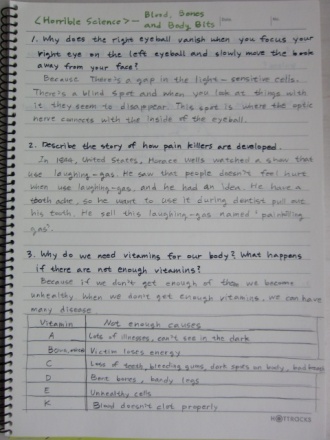 <Horrible Science> - Blood, Bones
and Body Bits
1. Why does the right eyeball vanish when you focus your
right eye on the left eyeball and slowly move the book
away from your face?
Because There's a gap in the light-sensitive cells.
There's a blind spot and when you look at things with
it they seem to disappear. This spot is where the optic
nerve connects with the inside of the eyeball.
2. Describe the story of how pain killers are developed.
In United States, Horace Wells watched a show that
use laughing-gas. He saw that people doesn't feel hurt
when use laughing-gas, and he had an idea. He have a
tooth ache, so he want to use it during dentist pull out
his tooth. He sell this laughing-gas named 'painkilling
gas'.
3. Why do we need vitamins for our body? What happens
if there are not enough vitamins?
Because if we don't get enough of them we become
unhealthy. When we don't get enough vitamins, we can have
many disease
Vitamin Not enough causes
A Lots of illnesses, can't see in the dark
Victim loses energy
C Loss of teeth, bleeding gums, dark spots on body, bad breath
D Bent bones, bandy legs
E Unhealthy cells
K Blood doesn't clot properly
HOTTRACKS